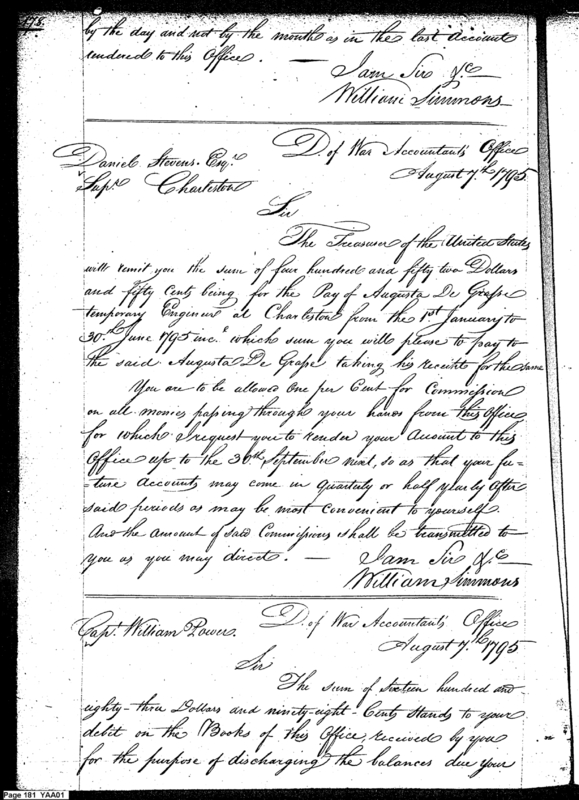 178.
by the day and not by the month as in the last Account
rendered to this Office. —
I am Sir &c
William Simmons
D. of War Accountants Office
August 7.th 1795
Daniel Stevens Esqr.
Supr. Charleston
Sir
The Treasurer of the United States
will remit you the sum of four hundred and fifty two Dollars
and fifty Cents being for the Pay of Augusta De Grasse
temporary Engineer at Charleston from the 1st January to
30.th June 1795 inc.e which sum you will please to pay to
the said Augusta De Grasse taking his receipts for the same
You are to be allowed One per Cent for Commission
on all monies passing through your hands from this Office
for which I request you to render your Account to this
Office up to the 30th September next, so as that your fu=
=ture Accounts may come in Quarterly or half Yearly after
said periods as may be most convenient to yourself
And the amount of said Commissions shall be transmitted to
you as you may direct. — I am Sir &c.
William Simmons
D. of War Accountants Office
August 7.th 1795
Capt. William Power.
Sir
The sum of Sixteen hundred and
eighty-three Dollars and ninety-eight Cents stands to your
debit on the Books of this Office, received by you
for the purpose of discharging the balances due your
Page 181 YAA01